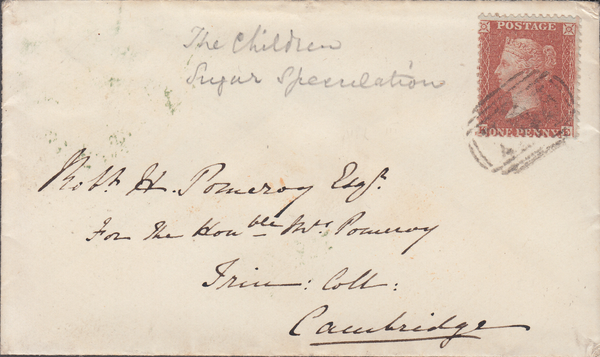 The Children
Sugar Speculation
POSTAGE
ONE PENNY
Robt H. Pomeroy Esqr.
For the Honble Mrs Pomeroy
Trin: Coll:
Cambridge